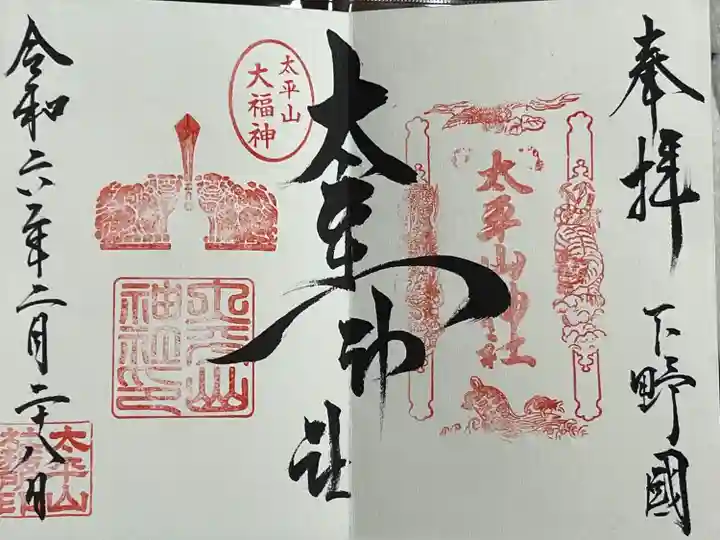 奉拝
下野國
太平山神社
太平山神社
太平山
大福神
太平山神社印
令和六年二月二十八日
太平山